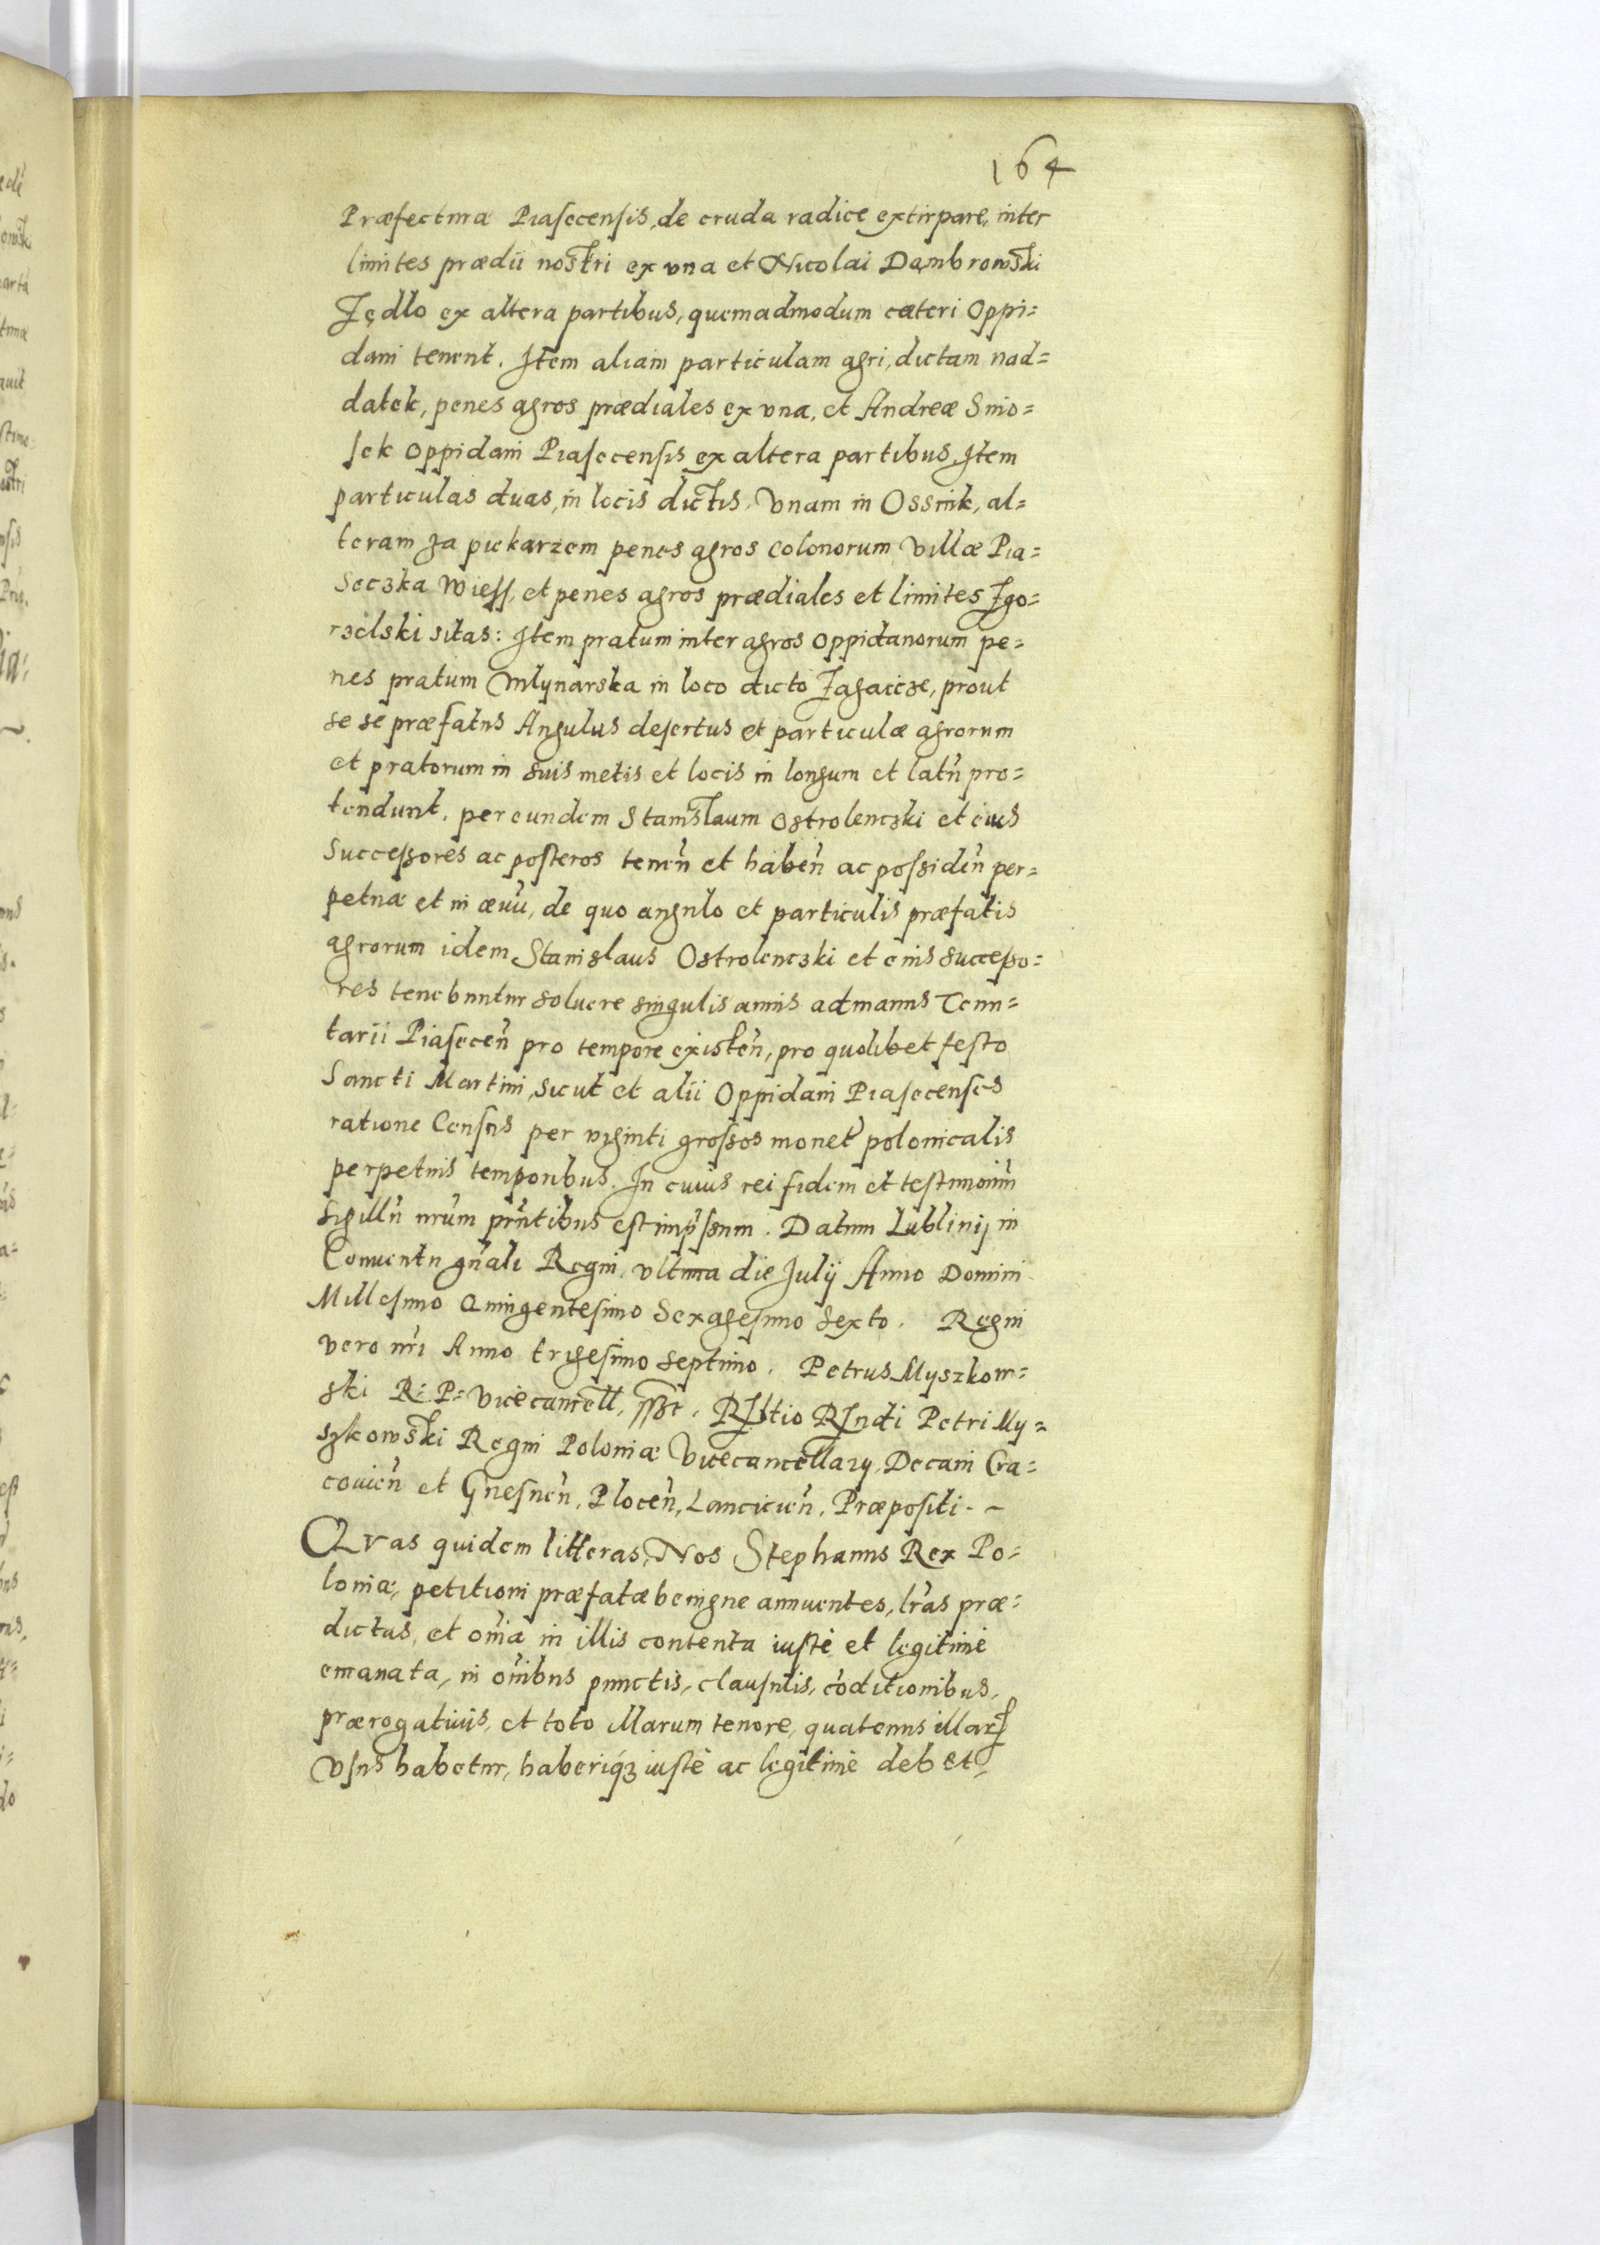 164
Præfectura Piasecensis, de cruda radice extirpare, inter
limites prædii nostri ex vna et Nicolai Dąmbrowski
Jędlo ex altera partibus, quemadmodum cæteri Oppi=
dani tenent. Item aliam particulam agri, dictam nad=
datek, penes agros prædiales ex vna, et Andreæ Smo=
sek Oppidani Piasecensis ex altera partibus, Item
particulas duas, in locis dictis, Vnam in Ossink, al=
teram Za piekarzem penes agros colonorum Villæ Pia=
seczka Wiess, et penes agros prædiales et limites Zgo=
rzelski sitas: Item pratum inter agros oppidanorum pe=
nes pratum Mlynarska in loco dicto Zagaicze, prout
se se præfatus Angulus desertus et particulæ agrorum
et pratorum in suis metis et locis in longum et latũ pro=
tendunt, per eundem Stanislaum Ostrolenczki et eius
Successores ac posteros tenen̄ et haben̄ ac possiden̄ per=
petuæ et in æuũ, de quo angulo et particulis præfatis
agrorum idem Stanislaus Ostrolenczki et eius successo=
res tenebuntur soluere singulis annis ad manus Tenu=
tarii Piasecen̄ pro tempore existen̄, pro quolibet festo
Sancti Martini, sicut et alii Oppidani Piasecenses
ratione Census per viginti grossos monet̄ polonicalis
perpetuis temporibus. In cuius rei fidem et testimoniũ
Sigillũ nrũm pn̄tibus est imp̄ssum. Datum Lublinij in
Conuentu gn̄ali Regni, vltima die Julij Anno Domini
Millesimo Quingentesimo Sexagesimo Sexto. Regni
vero nr̄i Anno trigesimo septimo. Petrus Myszkow=
ski R: P: Vicecancell, sszt. Rltio Rndi Petri My=
szkowski Regni Poloniæ Vicecancellarij, Decani Cra=
couien̄ et Gnesnen̄, Plocen̄, Lancicien̄, Præpositi. ~
Qvas quidem litteras, Nos Stephanus Rex Po=
loniæ, petitioni præfatæ benigne annuentes, lr̄as præ=
dictas, et om̄ia in illis contenta iustè et legitimè
emanata, in om̄ibus punctis, clausulis, cōditionibus,
prærogatiuis, et toto illarum tenore, quatenus illarꝝ
Vsus habetur, haberiq́ꝫ iustè ac legitimè debet,